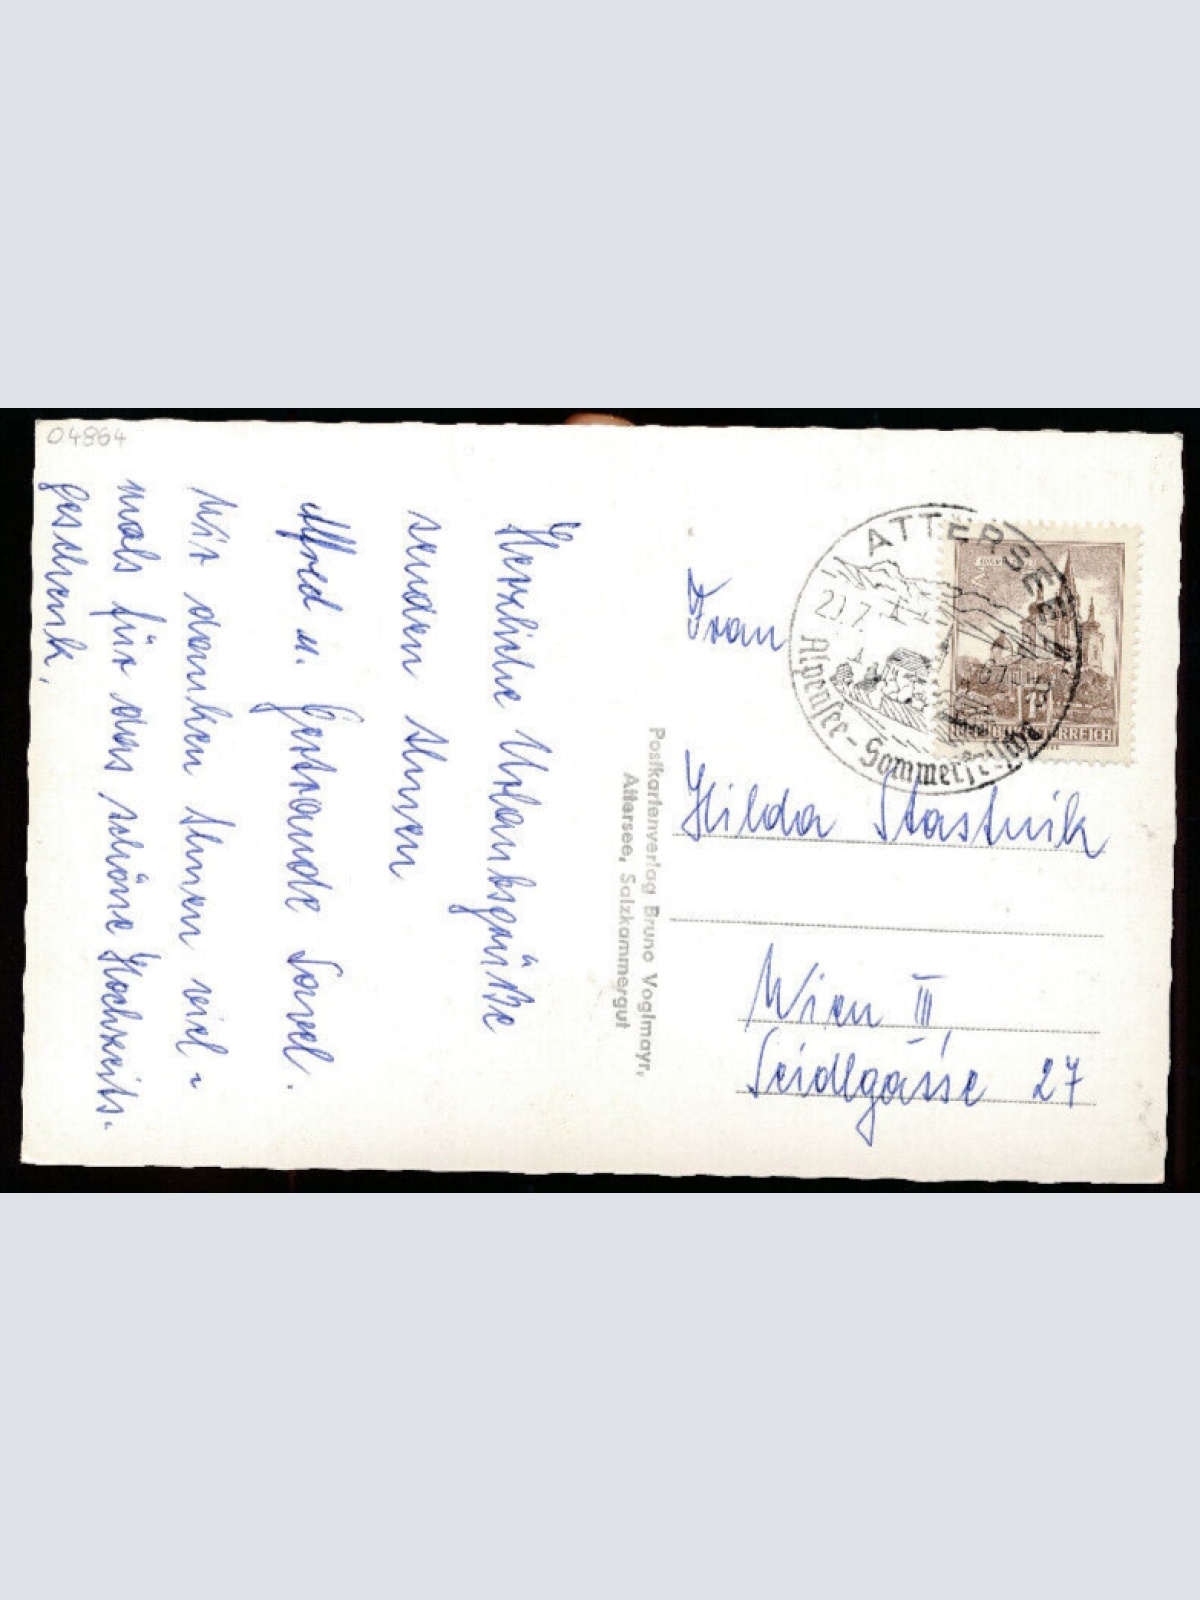 04864
Herzliche Urlaubsgrüße
senden Ihnen
Alfred u. Gertraude
Wir danken Ihnen viel-
mals für das schöne Hochzeits-
geschenk.
Postkartenverlag Bruno Voglmayr,
Attersee, Salzkammergut
ATTERSEE
Alpensee-Sommerfrische
Frau
Hilda Stastnik
Wien III,
Seidlgasse 27